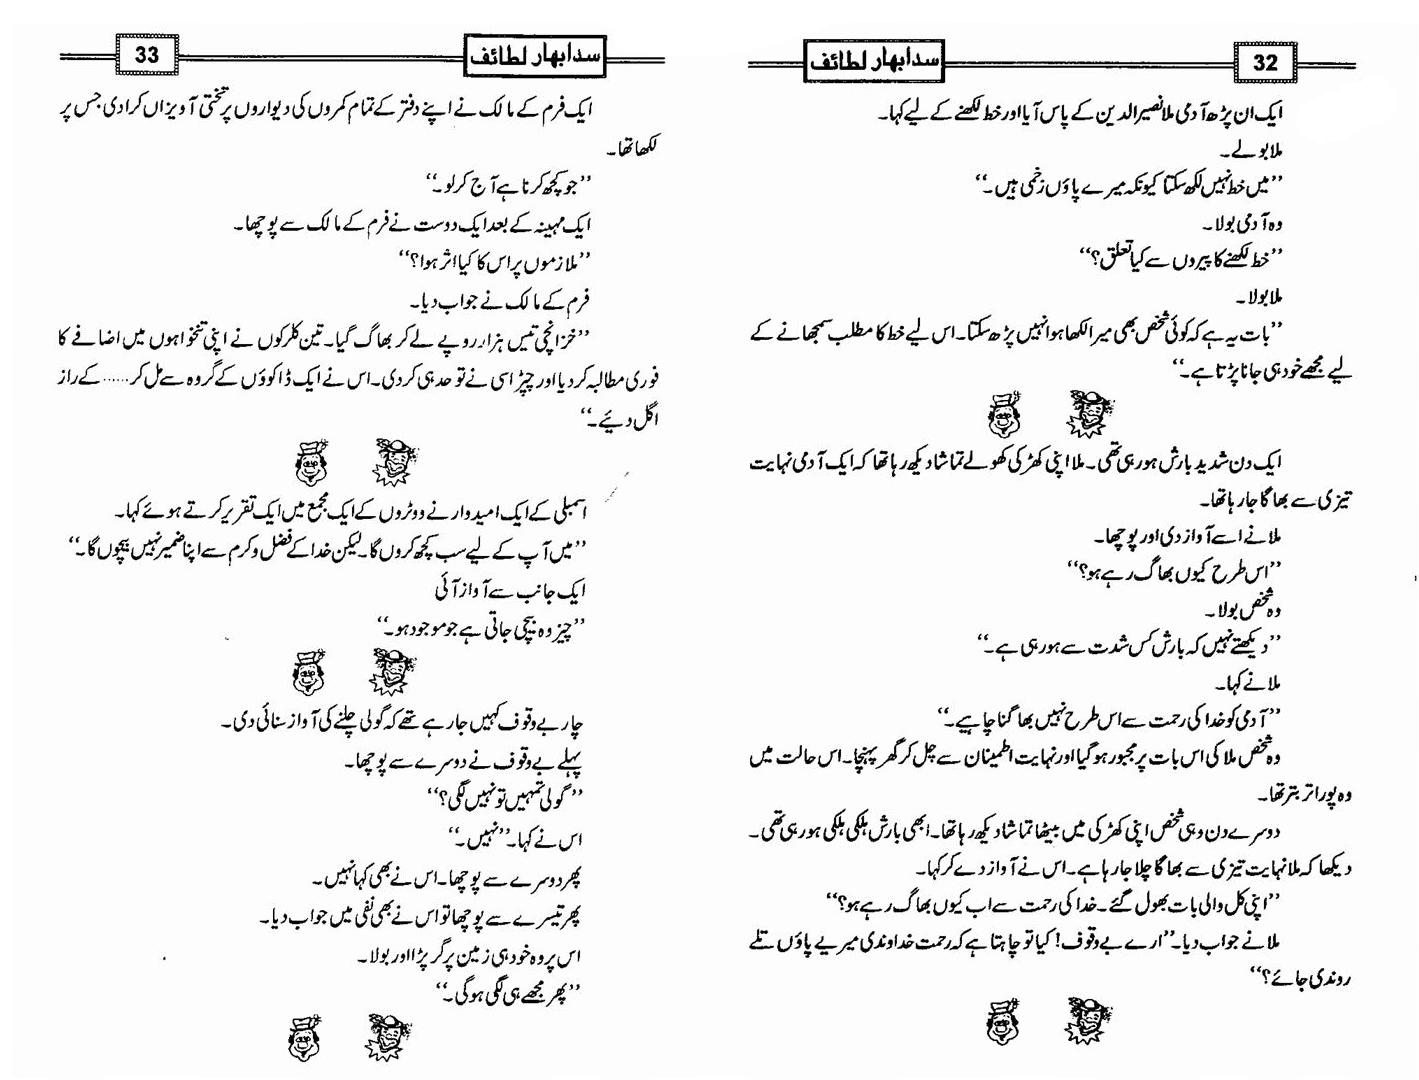 32
سدابہار لطائف
ایک ان پڑھ آدمی ملا نصیرالدین کے پاس آیا اور خط لکھنے کے لیے کہا۔
ملا بولے۔
’’میں خط نہیں لکھ سکتا کیونکہ میرے پاؤں زخمی ہیں۔‘‘
وہ آدمی بولا۔
’’خط لکھنے کا پیروں سے کیا تعلق؟‘‘
ملا بولا۔
’’بات یہ ہے کہ کوئی شخص بھی میرا لکھا ہوا نہیں پڑھ سکتا۔ اس لیے خط کا مطلب سمجھانے کے
لیے مجھے خود ہی جانا پڑتا ہے۔‘‘
ایک دن شدید بارش ہو رہی تھی۔ ملا اپنی کھڑکی کھولے تماشا دیکھ رہا تھا کہ ایک آدمی نہایت
تیزی سے بھاگا جا رہا تھا۔
ملا نے اسے آواز دی اور پوچھا۔
’’اس طرح کیوں بھاگ رہے ہو؟‘‘
وہ شخص بولا۔
’’دیکھتے نہیں کہ بارش کس شدت سے ہو رہی ہے۔‘‘
ملا نے کہا۔
’’آدمی کو خدا کی رحمت سے اس طرح نہیں بھاگنا چاہیے۔‘‘
وہ شخص ملا کی اس بات پر مجبور ہو گیا اور نہایت اطمینان سے چل کر گھر پہنچا۔ اس حالت میں
وہ پورا تر بتر تھا۔
دوسرے دن وہی شخص اپنی کھڑکی میں بیٹھا تماشا دیکھ رہا تھا۔ ابھی بارش ہلکی ہلکی ہو رہی تھی۔
دیکھا کہ ملا نہایت تیزی سے بھاگا چلا جا رہا ہے۔ اس نے آواز دے کر کہا۔
’’اپنی کل والی بات بھول گئے۔ خدا کی رحمت سے اب کیوں بھاگ رہے ہو؟‘‘
ملا نے جواب دیا۔ ’’ارے بے وقوف! کیا تو چاہتا ہے کہ رحمت خداوندی میرے پاؤں تلے
روندی جائے؟‘‘
سدابہار لطائف
33
ایک فرم کے مالک نے اپنے دفتر کے تمام کمروں کی دیواروں پر تختی آویزاں کرا دی جس پر
لکھا تھا۔
’’جو کچھ کرنا ہے آج کر لو۔‘‘
ایک مہینہ کے بعد ایک دوست نے فرم کے مالک سے پوچھا۔
’’ملازموں پر اس کا کیا اثر ہوا؟‘‘
فرم کے مالک نے جواب دیا۔
’’خزانچی تیس ہزار روپے لے کر بھاگ گیا۔ تین کلرکوں نے اپنی تنخواہوں میں اضافے کا
فوری مطالبہ کر دیا اور چپڑاسی نے تو حد ہی کر دی۔ اس نے ایک ڈاکوؤں کے گروہ سے مل کر...... کے راز
اگل دیئے۔‘‘
اسمبلی کے ایک امیدوار نے ووٹروں کے ایک مجمع میں ایک تقریر کرتے ہوئے کہا۔
’’میں آپ کے لیے سب کچھ کروں گا۔ لیکن خدا کے فضل و کرم سے اپنا ضمیر نہیں بیچوں گا۔‘‘
ایک جانب سے آواز آئی
’’چیز وہ بیچی جاتی ہے جو موجود ہو۔‘‘
چار بے وقوف کہیں جا رہے تھے کہ گولی چلنے کی آواز سنائی دی۔
پہلے بے وقوف نے دوسرے سے پوچھا۔
’’گولی تمہیں تو نہیں لگی؟‘‘
اس نے کہا۔ ’’نہیں۔‘‘
پھر دوسرے سے پوچھا۔ اس نے بھی کہا نہیں۔
پھر تیسرے سے پوچھا تو اس نے بھی نفی میں جواب دیا۔
اس پر وہ خود ہی زمین پر گر پڑا اور بولا۔
’’پھر مجھے ہی لگی ہو گی۔‘‘